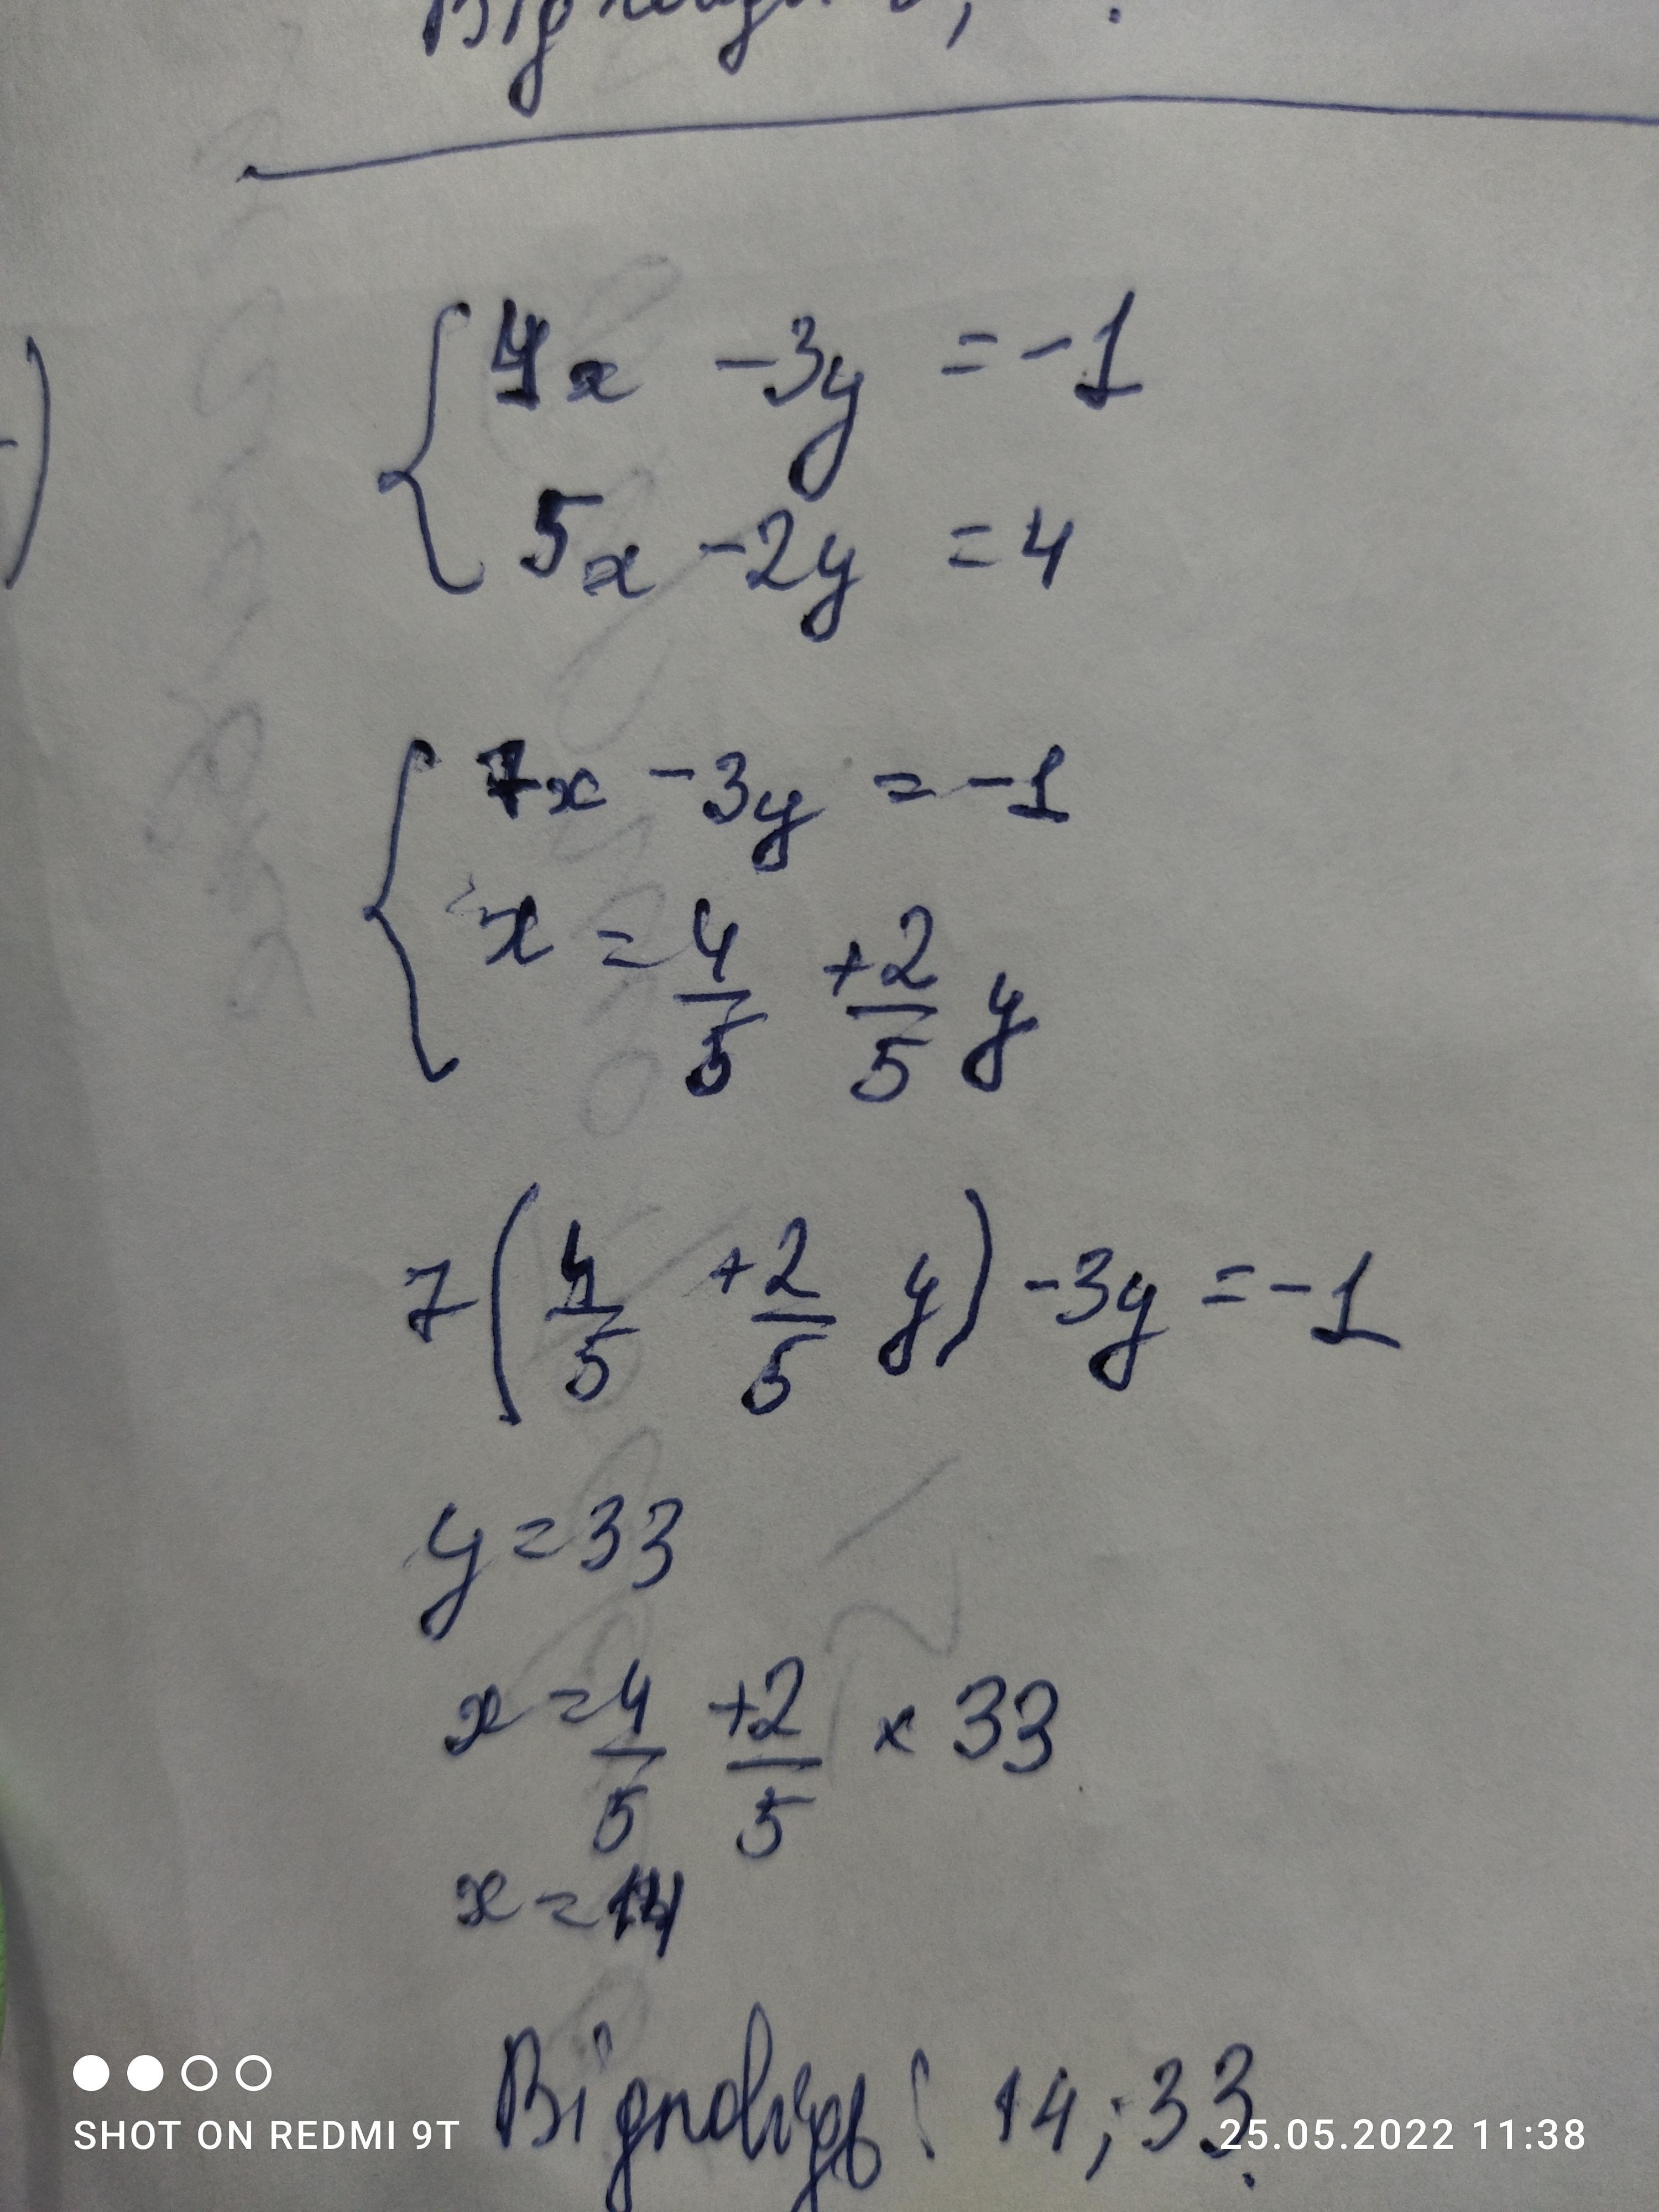 4x - 3y = -1
5x - 2y = 4
7x - 3y = -1
x = 4/5 + 2/5 y
7(4/5 + 2/5 y) - 3y = -1
y = 33
x = 4/5 + 2/5 × 33
x = 14
Відповідь: 14; 33.
SHOT ON REDMI 9T
25.05.2022 11:38